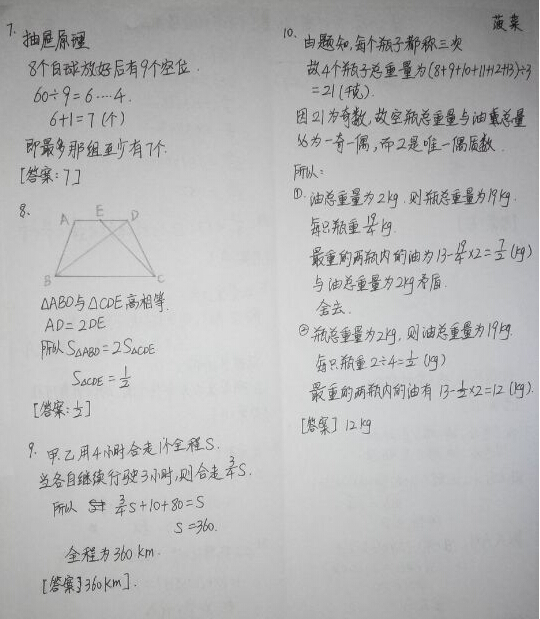 7. 抽屉原理
8个白球放好后有9个空位.
60÷9=6……4.
6+1=7(个)
即最多那组至少有7个.
[答案:7]
8.
A E D
B C
△ABD与△CDE高相等.
AD=2DE
所以S△ABD=2S△CDE
S△CDE=1/2
[答案:1/2]
9. 甲.乙用4小时合走1个全程S.
当各自继续行驶3小时,则合走3/4S.
所以 3/4S+10+80=S
S=360.
全程为360km.
[答案]360km].
菠菜
10. 由题知,每个瓶子都称三次
故4个瓶子总重量为(8+9+10+11+12+13)÷3
=21(千克).
因21为奇数,故空瓶总重量与油重总量
必为一奇一偶,而2是唯一偶质数.
所以:
①.油总重量为2kg.则瓶总重量为19kg.
每只瓶重19/4kg.
最重的两瓶内的油为13-19/4×2=7/2(kg)
与油总重量为2kg矛盾.
舍去.
②瓶总重量为2kg,则油总重量为19kg.
每只瓶重2÷4=1/2(kg)
最重的两瓶内的油有13-1/2×2=12(kg).
[答案]12kg